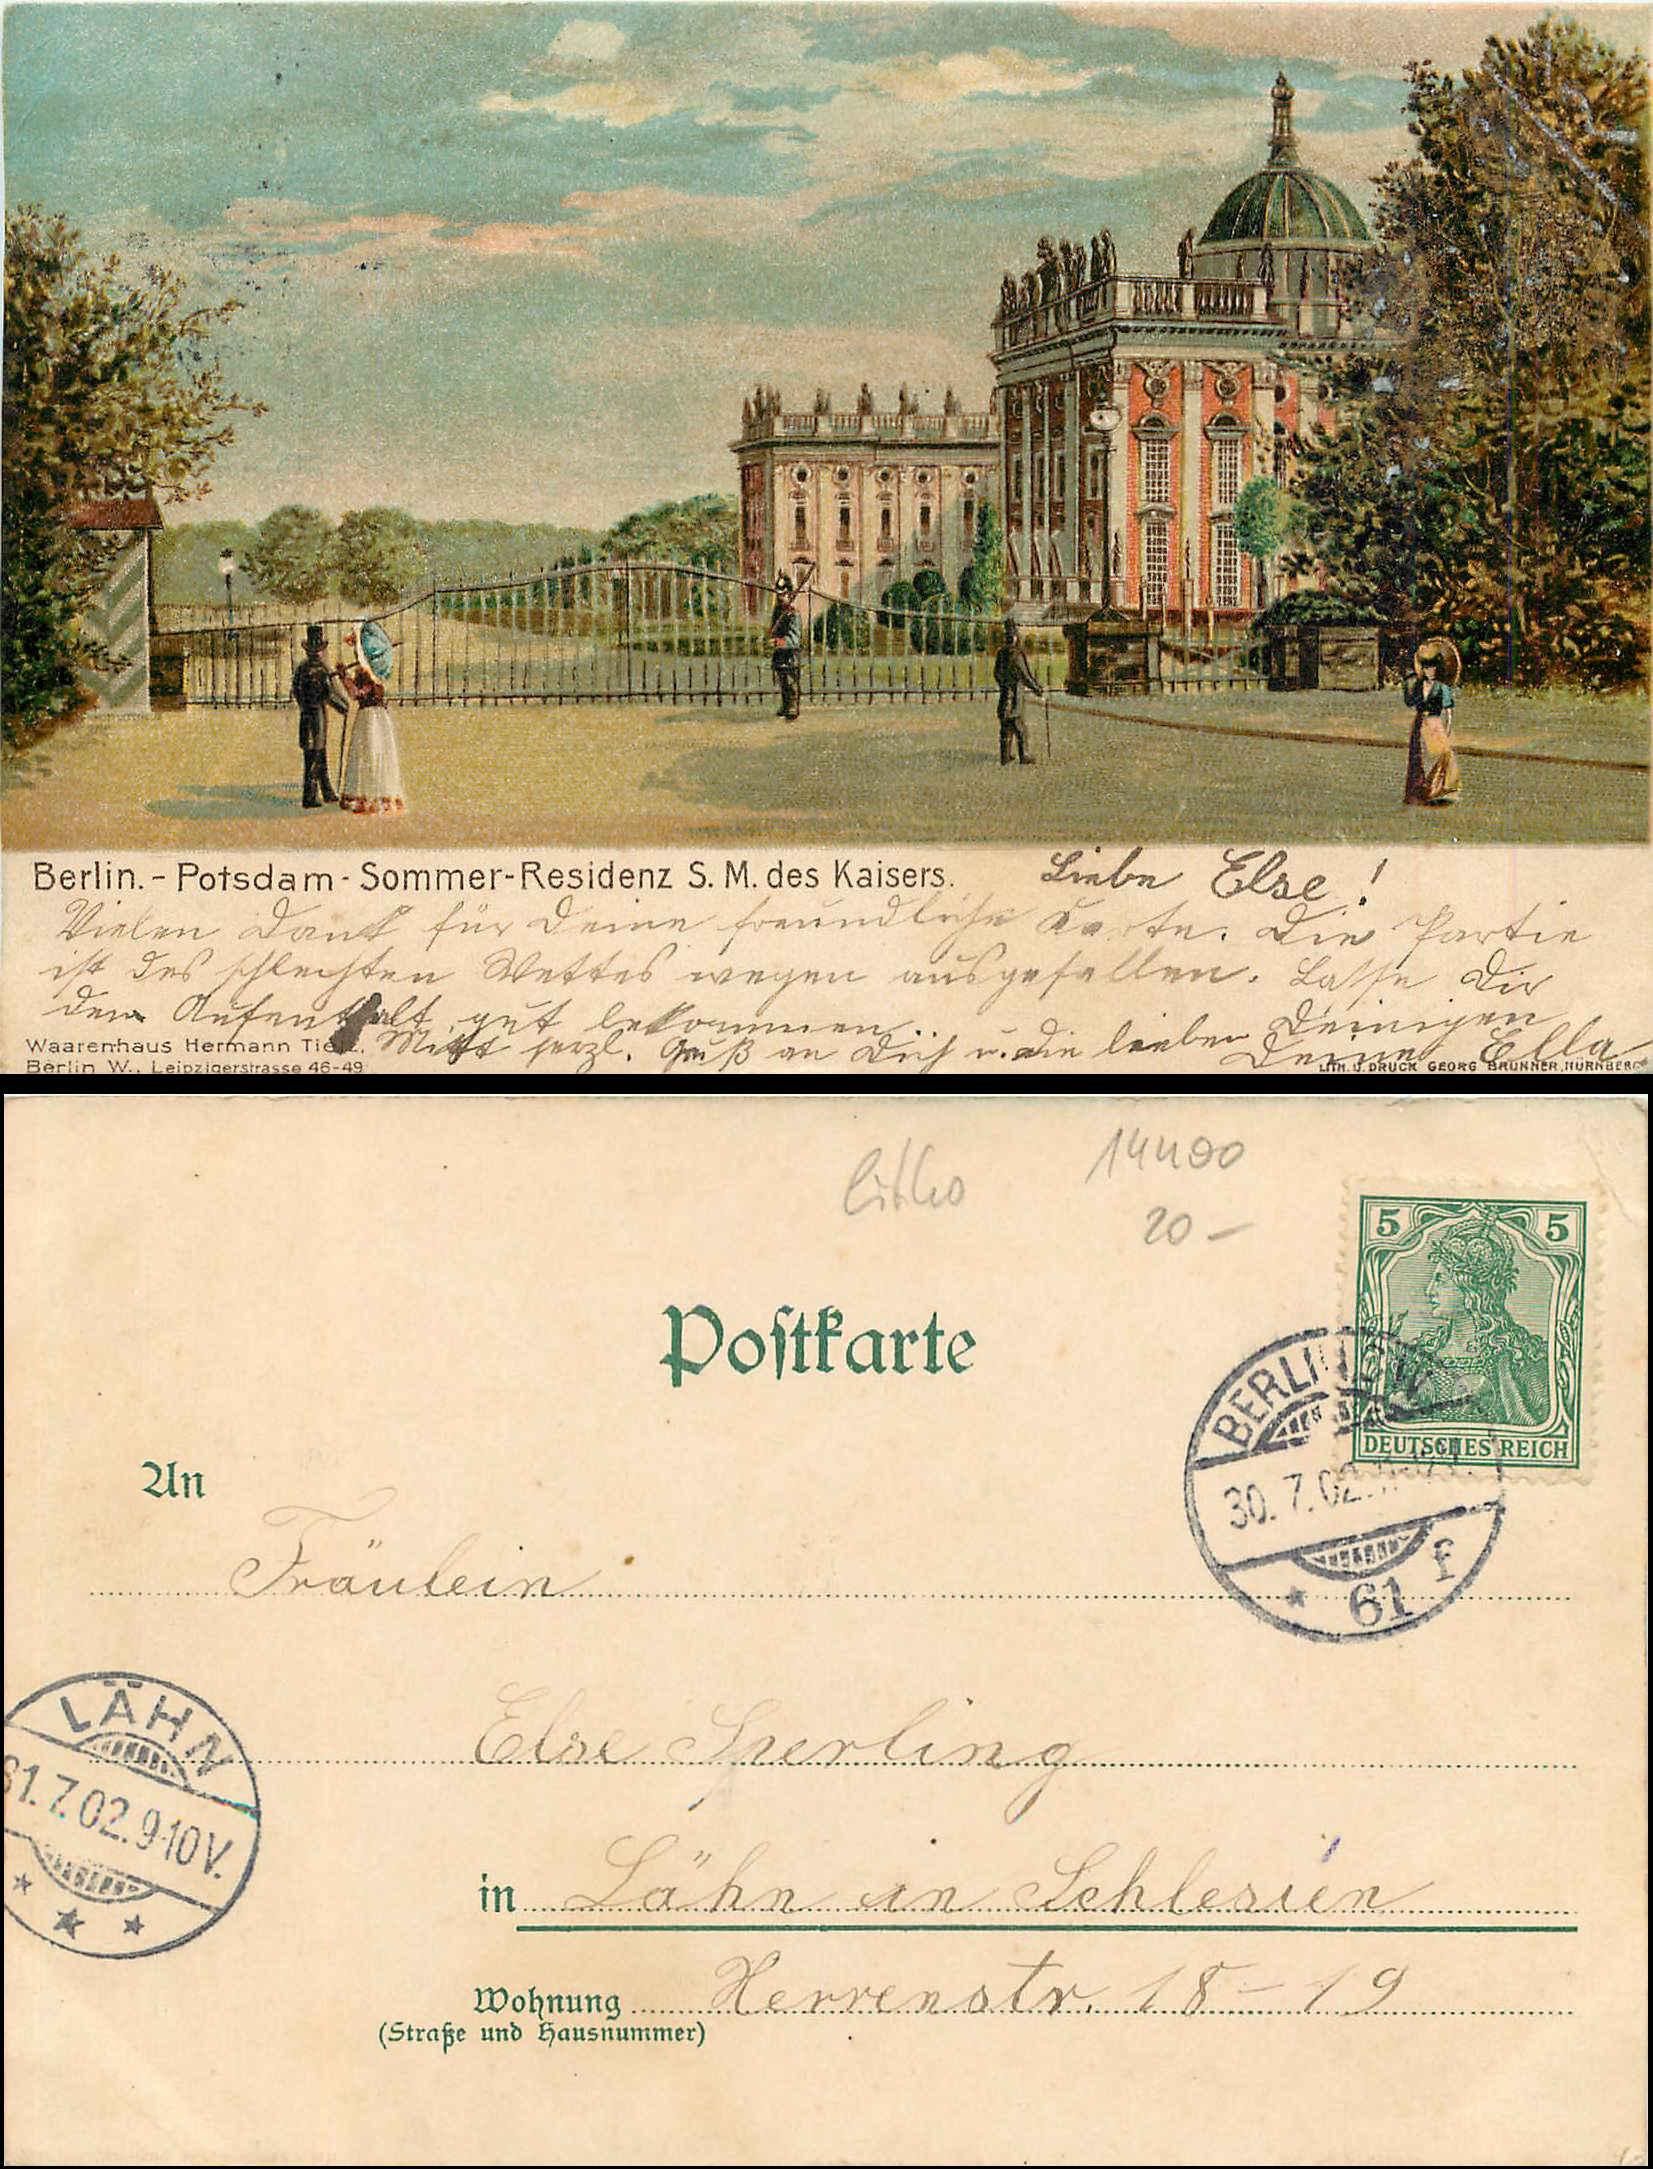 Berlin. - Potsdam - Sommer-Residenz S. M. des Kaisers.
Liebe Else!
Vielen Dank für Deine freundliche Karte. Die Partie
ist des schlechten Wetters wegen ausgefallen. Lasse Dir
den Aufenthalt gut bekommen.
Mit herzl. Gruß an Dich u. die lieben Deinigen
Deine Ella
Waarenhaus Hermann Tietz,
Berlin W., Leipzigerstrasse 46-49
LITH. U. DRUCK GEORG BRUNNER, NÜRNBERG
litho
14400
20 -
Postkarte
5 5
DEUTSCHES REICH
BERLIN
30. 7. 02.
* 61 f
An
Fräulein
LÄHN
31. 7. 02. 9-10 V.
Else Sperling
in Lähn in Schlesien
Wohnung Herrenstr. 18-19
(Straße und Hausnummer)